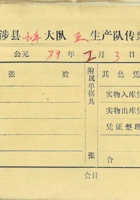 涉县 大队 五 生产队传
公元 79 年 2 月 3 日
张 数
附属单据共
张
其 他 凭
实物入库凭
实物出库凭
凭证整理
合 计
会计